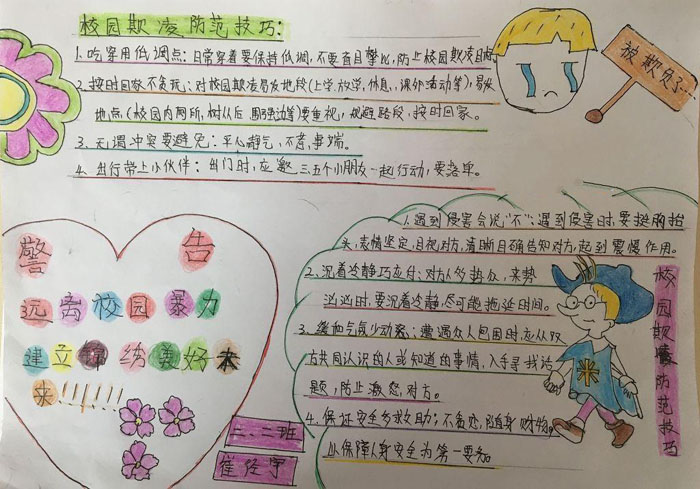 校园欺凌防范技巧:
1.吃穿用低调点:日常穿着要保持低调,不要盲目攀比,防止校园欺凌
2.按时回家不贪玩:对校园欺凌易发地段(上学、放学、休息、课外活动等),易发
地点(校园内厕所,树从后 围强边等)要重视,规避路段,按时回家。
3.无谓冲突要避免:平心静气,不惹事端。
4.出行带上小伙伴:出门时,应邀三五个小朋友一起行动,要落单。
被欺负了...
警告
远离校园暴力
建立 练美好未
来!!!!!!
二、二班
崔径宇
1.遇到侵害会说"不":遇到侵害时,要挺胸抬
头,表情坚定,目视对方,清晰目确告知对方,起到震慑作用。
2.沉着冷静巧应付:对方人多势众,来势
汹汹时,要沉着冷静,尽可能拖延时间。
3.缓和气氛少动怒:遭遇众人包围时,应从双
方共同认识的人或知道的事情,入手寻找话
题,防止激怒对方。
4.保证安全多求助:不贪恋随身财物。
以保障人身安全为第一要务。
校园欺凌防范技巧